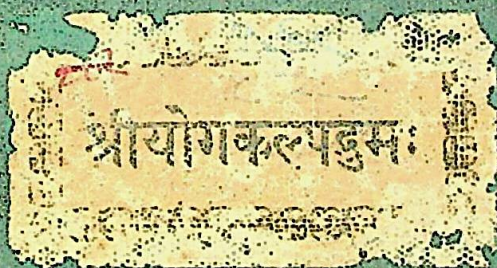 श्रीयोगकल्पद्रुमः